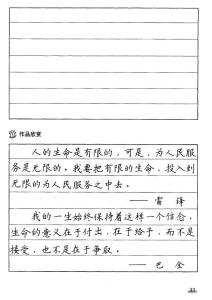 作品欣赏
人的生命是有限的,可是,为人民服
务是无限的。我要把有限的生命,投入到
无限的为人民服务之中去。
—— 雷 锋
我的一生始终保持着这样一个信念,
生命的意义在于付出,在于给予,而不是
接受,也不是在于争取。
—— 巴 金